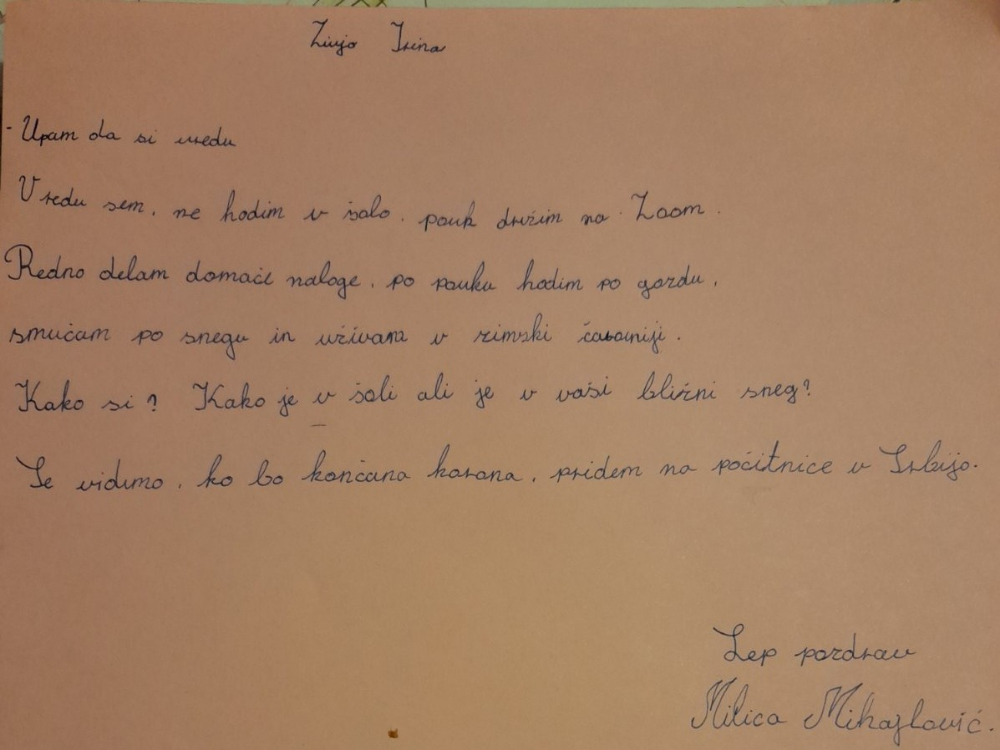 Živjo Irina
- Upam da si vredu
Vredu sem, ne hodim v šolo, pouk držim na Zoom.
Redno delam domače naloge, po pouku hodim po gozdu,
smučam po snegu in uživam v zimski čarovniji.
Kako si? Kako je v šoli ali je v vaši bližni sneg?
Se vidimo, ko bo končana korona, pridem na počitnice v Srbijo.
Lep pozdrav
Milica Mihajlović.